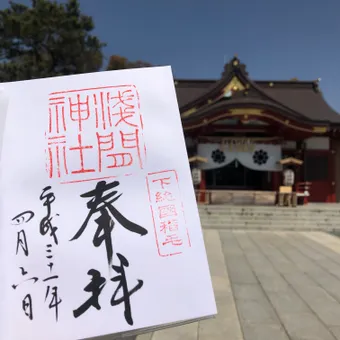 下総国稲毛
浅間
神社
奉拝
平成三十一年
四月六日